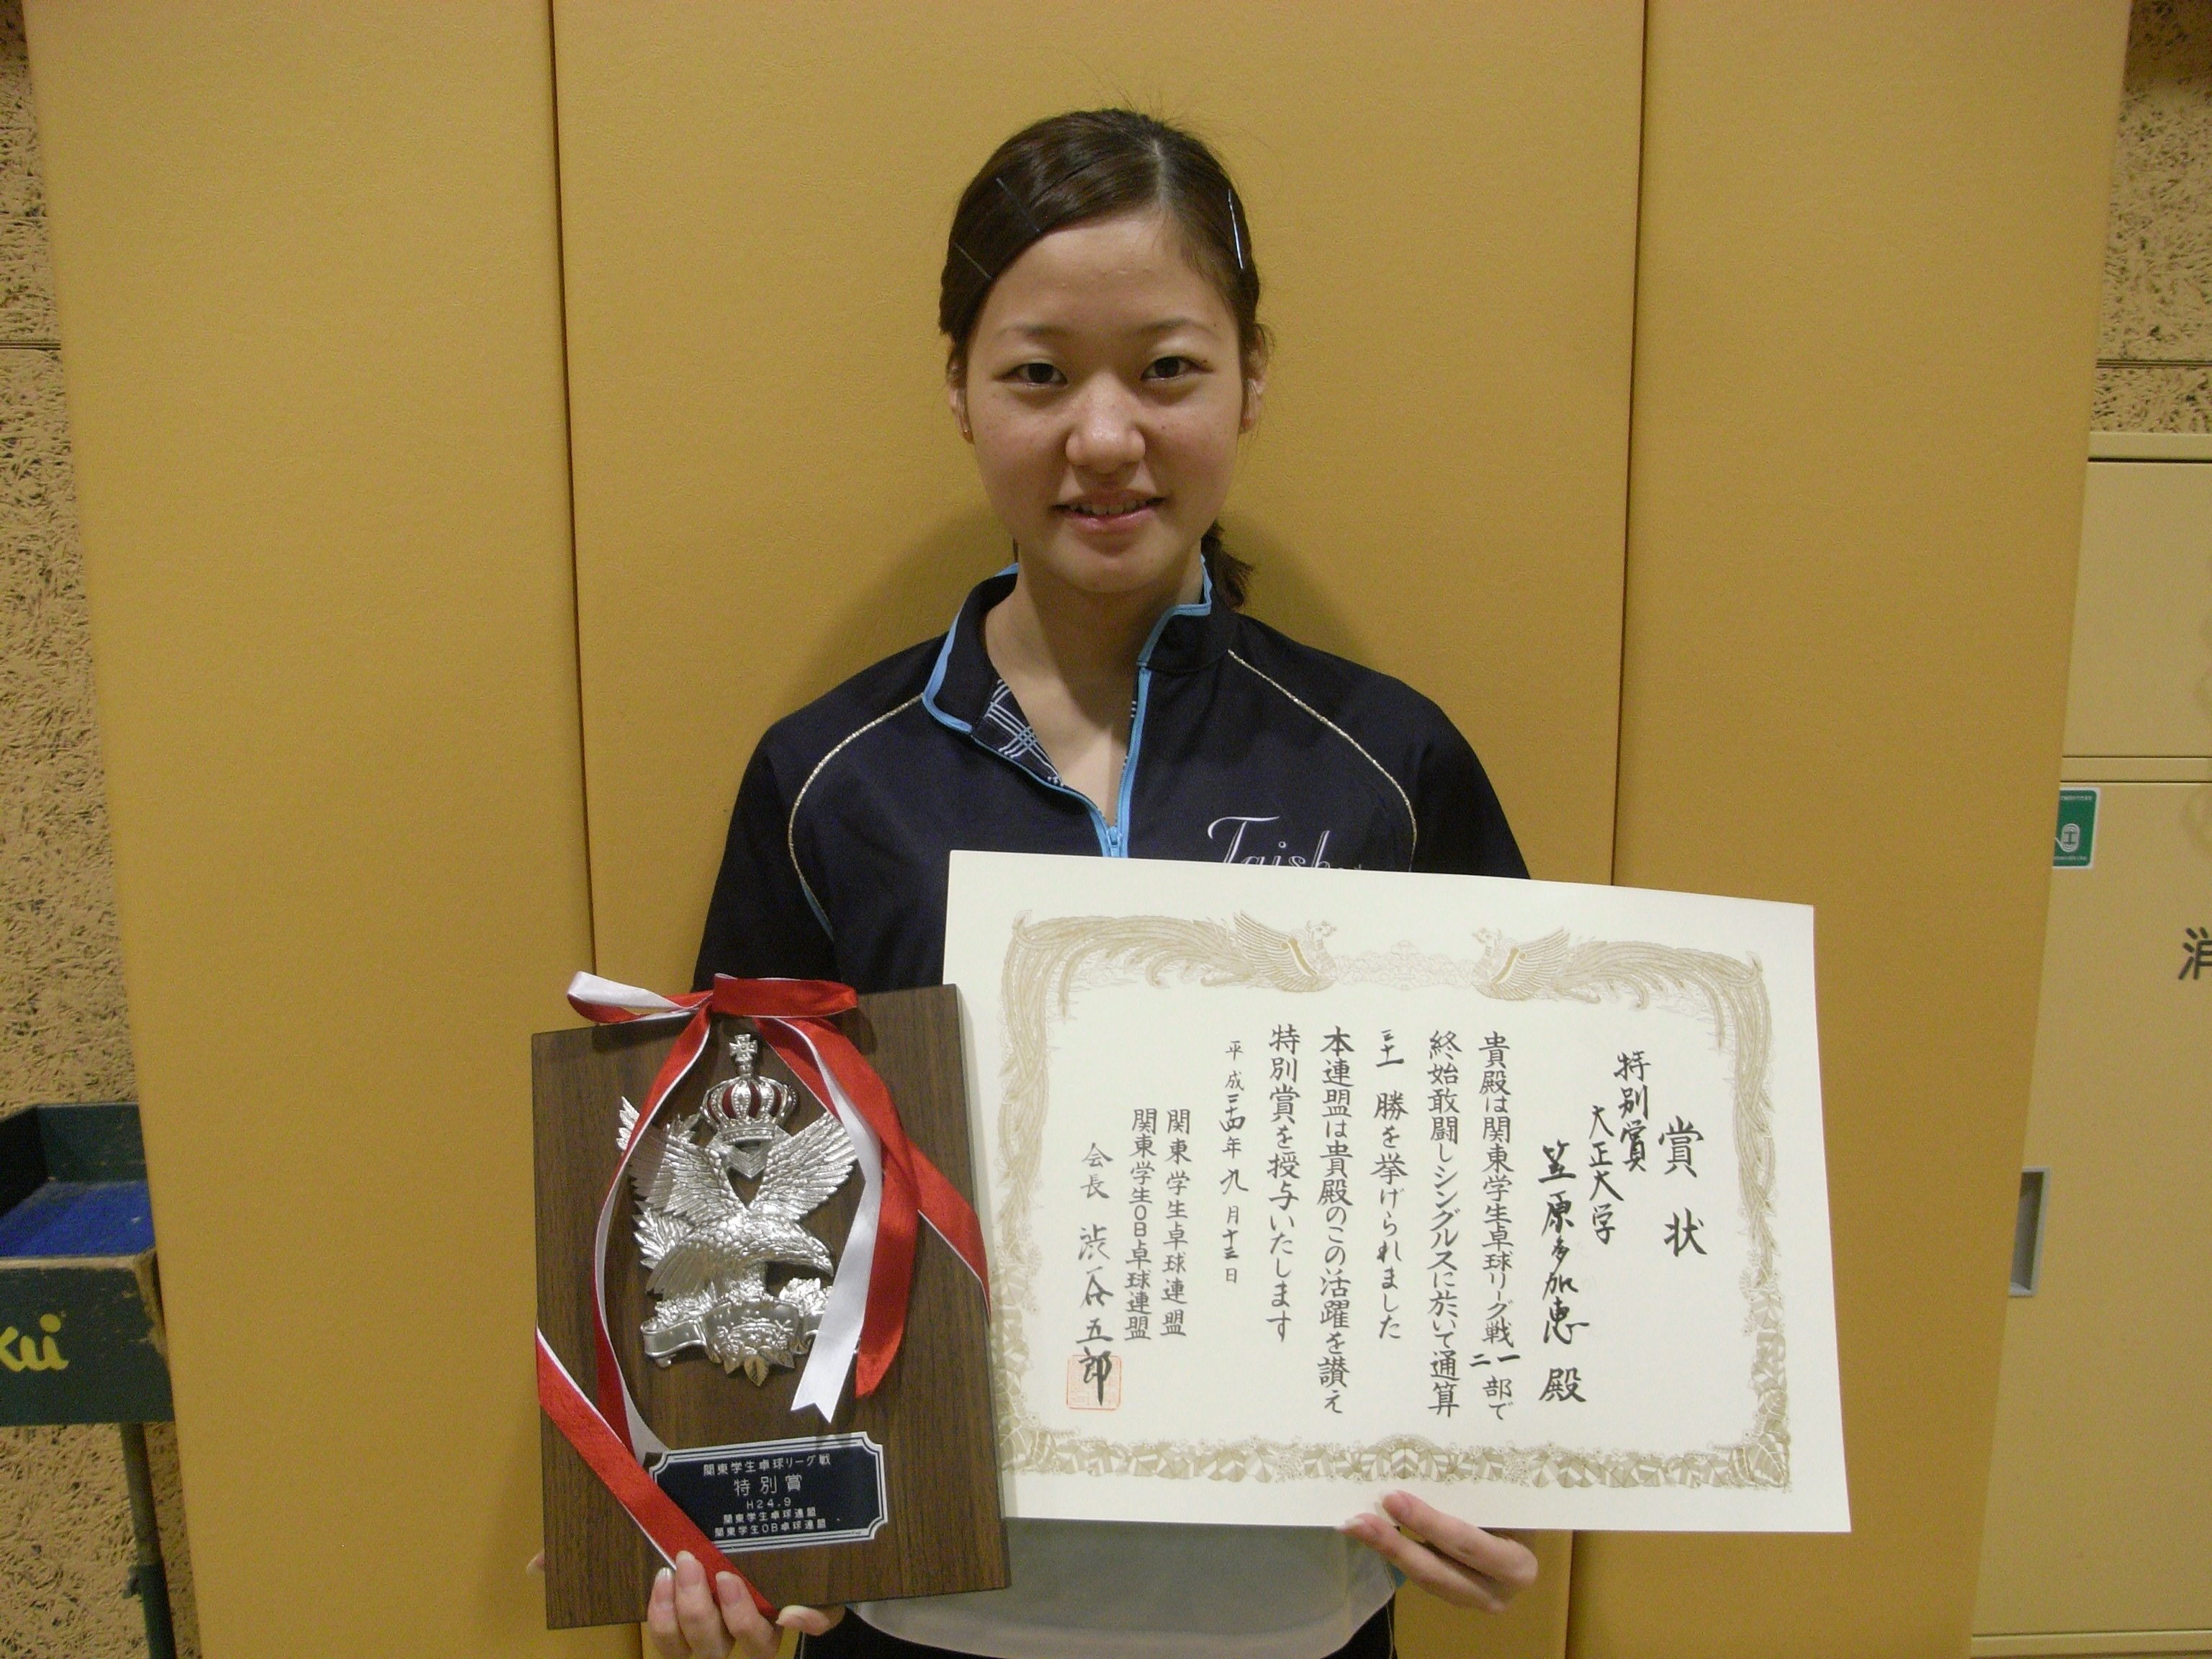 Taish
賞状
特別賞
大正大学
笠原多加恵 殿
貴殿は関東学生卓球リーグ戦一二部で
終始敢闘しシングルスに於いて通算
三十一勝を挙げられました
本連盟は貴殿のこの活躍を讃え
特別賞を授与いたします
平成二十四年九月十三日
関東学生卓球連盟
関東学生OB卓球連盟
会長 渋谷五郎
関東学生卓球リーグ戦
特別賞
H24.9
関東学生卓球連盟
関東学生OB卓球連盟
消